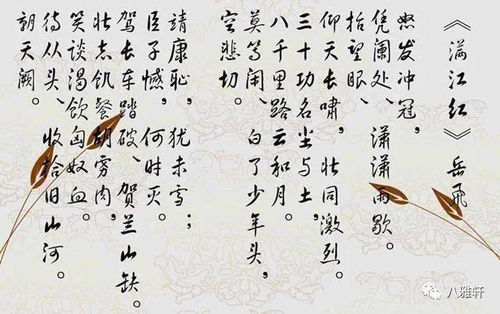 《满江红》岳飛
怒发冲冠，
凭阑处、潇潇雨歇。
抬望眼、
仰天长啸，壮怀激烈。
三十功名尘与土，
八千里路云和月。
莫等闲、白了少年头，
空悲切。
靖康耻，犹未雪；
臣子憾，何时灭。
驾长车踏破、贺兰山缺。
壮志饥餐胡虏肉，
笑谈渴饮匈奴血。
待从头、收拾旧山河。
朝天阙。
八雅轩